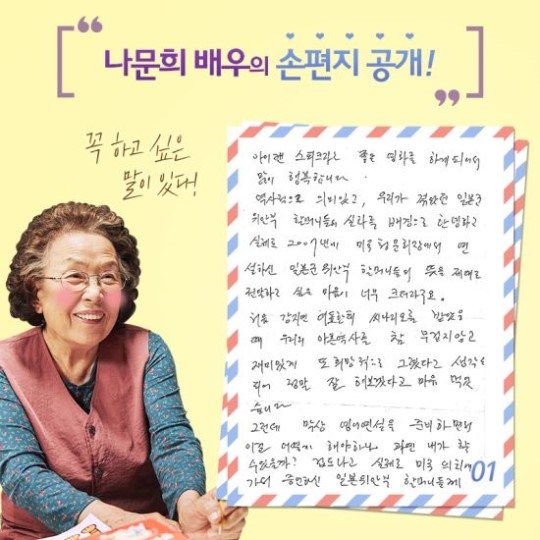 나문희 배우의 손편지 공개!
꼭 하고 싶은
말이 있대!
아이캔 스피크라는 좋은 영화를 하게 되어서
많이 행복합니다.
역사적으로 의미있고, 우리가 겪었던 일본군
위안부 할머니들의 실화를 배경으로 한 영화고
실제로 2007년에 미국 청문회장에서 연
설하신 일본군 위안부 할머니들의 뜻을 제대로
전달하고 싶은 마음이 너무 크더라구요.
처음 감독님 시나리오를 받았을
때 우리의 아픈역사를 참 무겁지않고
재미있게 또 희망적으로 그렸다고 생각
되어 정말 잘 해보겠다고 마음 먹은
습니다
그런데 막상 영어연설을 준비하면서
이걸 어떻게 해야하나, 과연 내가 할
수있을까? 겁도나고 실제로 미국 의회에
가서 증언하신 일본위안부 할머니들께
01